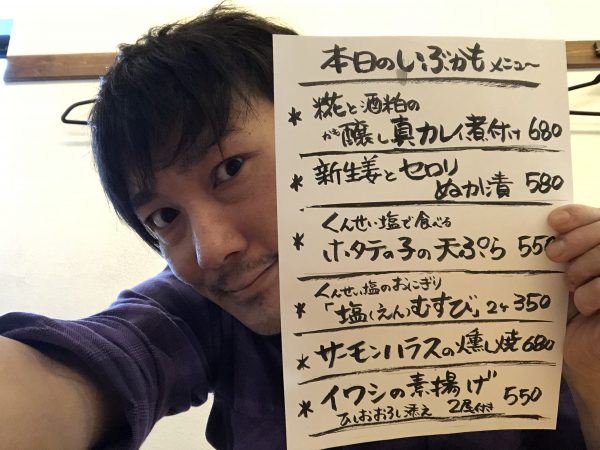 本日のいぶかもメニュー
* 糀と酒粕の
かも醸し真カレイ煮付け 680
* 新生姜とセロリ
ぬか漬 580
くんせい塩で食べる
* ホタテの子の天ぷら 550
くんせい塩のおにぎり
* 「塩(えん)むすび」2ケ 350
* サーモンハラスの燻し焼 680
* イワシの素揚げ 550
ひしおおろし添え 2尾付き